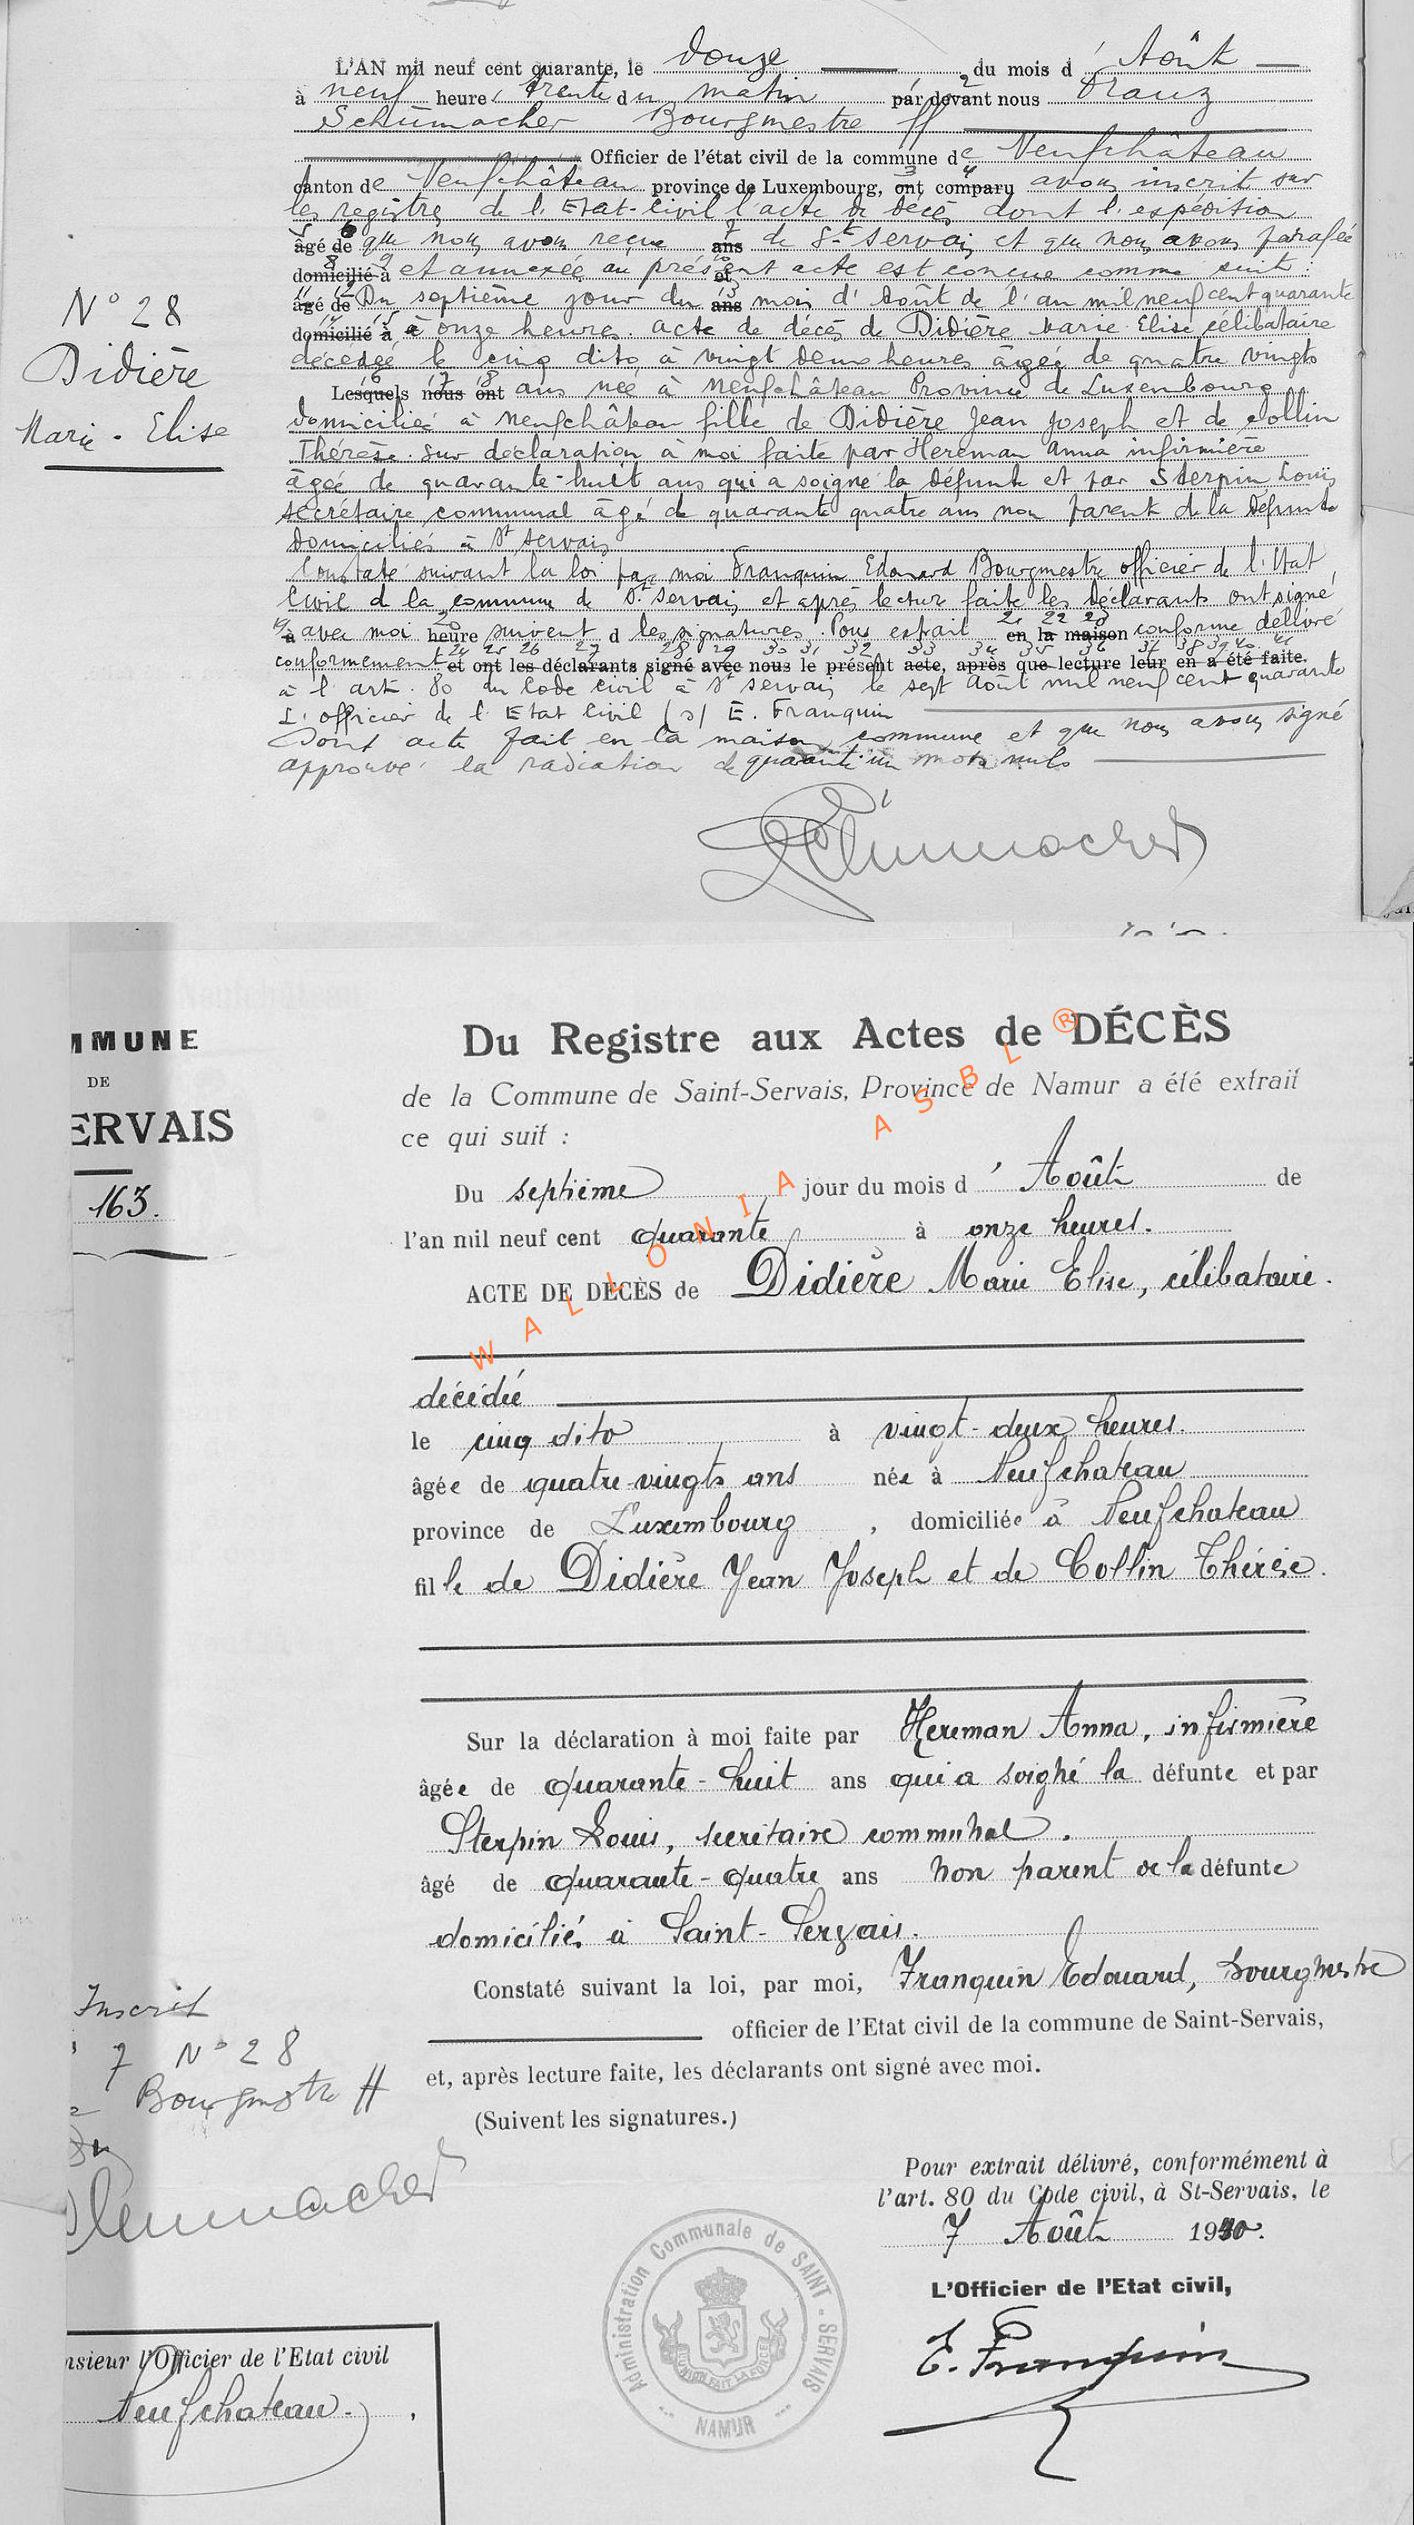 L'AN mil neuf cent quarante, le douze du mois d'Août
à neuf heures trente du matin par devant nous Franz
Schumacher Bourgmestre ff
Officier de l'état civil de la commune de Neufchâteau
canton de Neufchâteau province de Luxembourg, ont comparu avons inscrit sur
les registres de l'Etat-Civil l'acte de décès dont l'expédition
âgé de que nous avons reçue ans de St Servais et que nous avons parafée
domicilié à et annexée au présent acte est conçue comme suit :
âgé de Du septième jour du ans mois d'Août de l'an mil neuf cent quarante
domicilié à à onze heures. acte de décès de Didière Marie Elise célibataire
décédée le cinq dito à vingt deux heures âgée de quatre vingts
Lesquels nous ont ans née à Neufchâteau Province de Luxembourg
domiciliée à Neufchâteau fille de Didière Jean Joseph et de Collin
Thérèse. Sur déclaration à moi faite par Hereman Anna infirmière
âgée de quarante-huit ans qui a soigné la défunte et par Sterpin Louis
secrétaire communal âgé de quarante quatre ans non parent de la défunte
domiciliés à St Servais
Constaté suivant la loi par moi Franquin Edouard Bourgmestre officier de l'Etat
Civil d la commune de St Servais et après lecture faite les déclarants ont signé
à avec moi heure suivent d les signatures. Pour extrait en la maison conforme délivré
conformement et ont les déclarants signé avec nous le présent acte, après que lecture leur en a été faite.
à l'art. 80 du Code Civil à St Servais le sept Août mil neuf cent quarante
L'officier de l'Etat Civil (s) E. Franquin
Dont acte fait en la maison commune et que nous avons signé
approuvé la radiation de quarante un mots nuls
Schumacher
N° 28
Didière
Marie-Elise
MMUNE
DE
ERVAIS
163.
Du Registre aux Actes de DÉCÈS
de la Commune de Saint-Servais, Province de Namur a été extrait
ce qui suit :
Du septième jour du mois d'Août de
l'an mil neuf cent quarante à onze heures.
ACTE DE DÉCÈS de Didière Marie Elise, célibataire.
décédée
le cinq dito à vingt-deux heures.
âgée de quatre-vingts ans née à Neufchateau
province de Luxembourg, domiciliée à Neufchateau
fille de Didière Jean Joseph et de Collin Thérèse.
Sur la déclaration à moi faite par Hereman Anna, infirmière
âgée de quarante-huit ans qui a soigné la défunte et par
Sterpin Louis, secrétaire communal.
âgé de quarante-quatre ans non parent de la défunte
domiciliés à Saint-Servais.
Constaté suivant la loi, par moi, Franquin Edouard, bourgmestre
officier de l'Etat civil de la commune de Saint-Servais,
et, après lecture faite, les déclarants ont signé avec moi.
(Suivent les signatures.)
Pour extrait délivré, conformément à
l'art. 80 du Code civil, à St-Servais, le
7 Août 1940.
L'Officier de l'Etat civil,
E. Franquin
Inscrit
7 N° 28
Bourgmestre ff
Schumacher
nsieur l'Officier de l'Etat civil
Neufchateau.
Administration Communale de SAINT-SERVAIS
L'UNION FAIT LA FORCE
NAMUR
WALLONIA ASBL ®